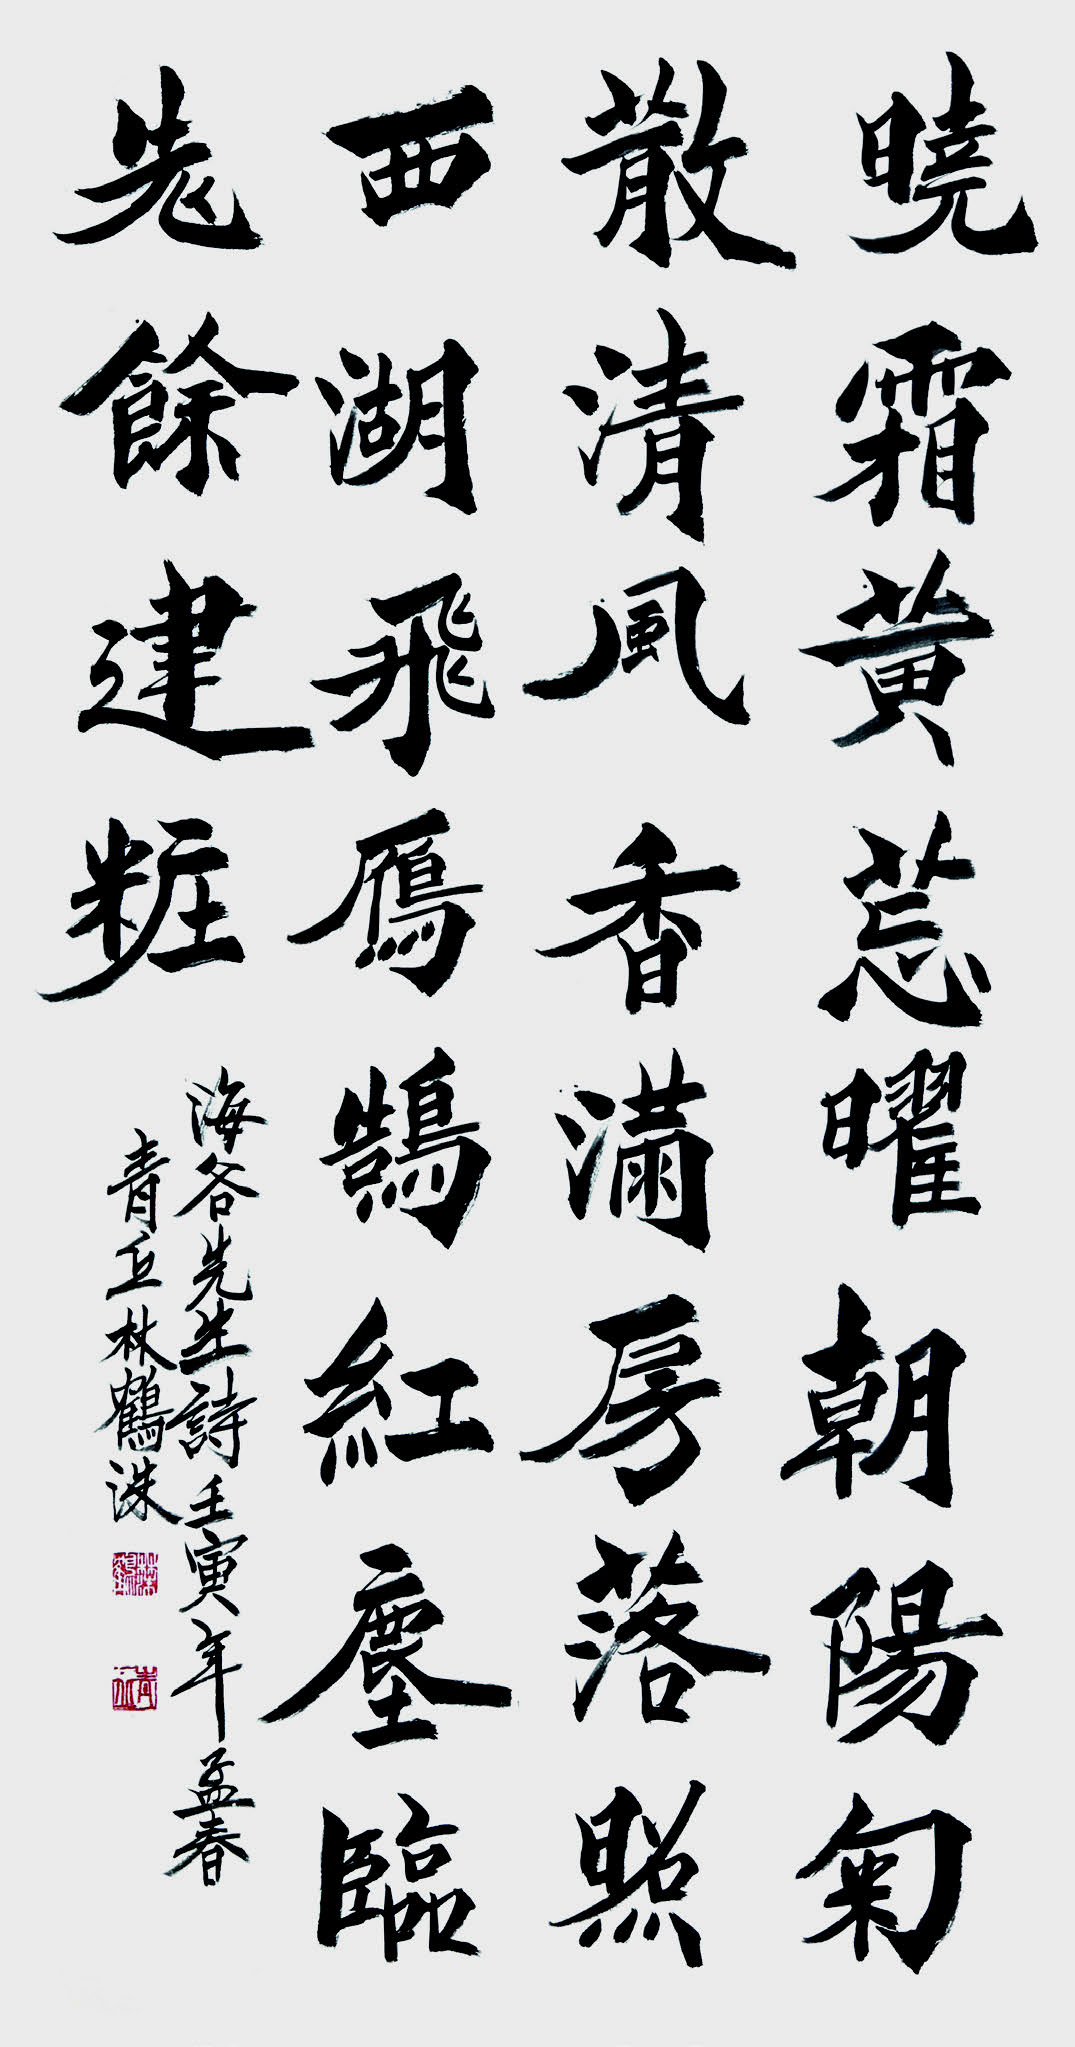 曉霜黃蕊曜朝陽菊
散清風香滿房落照
西湖飛鴈鵠紅塵臨
先餘建粧
海谷先生詩壬寅年孟春
青丘林鶴洙